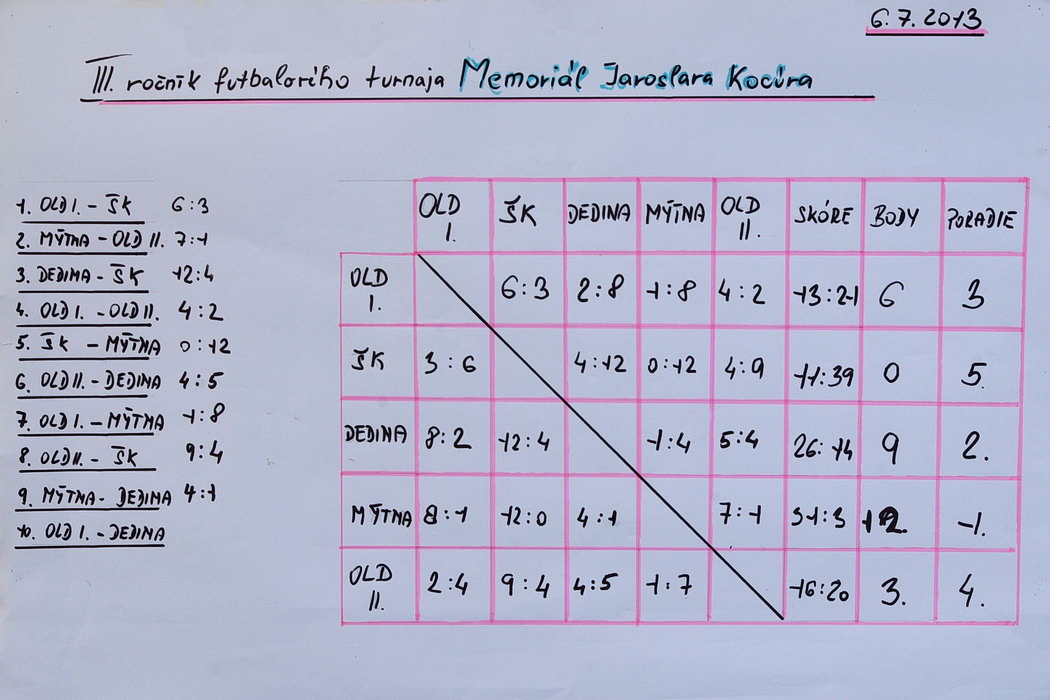 6.7.2013
III. ročník futbalového turnaja Memoriál Jaroslava Kocúra
1. OLD I. - ŠK 6:3
2. MÝTNA - OLD II. 7:1
3. DEDINA - ŠK 12:4
4. OLD I. - OLD II. 4:2
5. ŠK - MÝTNA 0:12
6. OLD II. - DEDINA 4:5
7. OLD I. - MÝTNA 1:8
8. OLD II. - ŠK 9:4
9. MÝTNA - DEDINA 4:1
10. OLD I. - DEDINA
OLD I. ŠK DEDINA MÝTNA OLD II. SKÓRE BODY PORADIE
OLD I. 6:3 2:8 1:8 4:2 13:21 6 3
ŠK 3:6 4:12 0:12 4:9 11:39 0 5.
DEDINA 8:2 12:4 1:4 5:4 26:14 9 2.
MÝTNA 8:1 12:0 4:1 7:1 31:3 12 1.
OLD II. 2:4 9:4 4:5 1:7 16:20 3. 4.